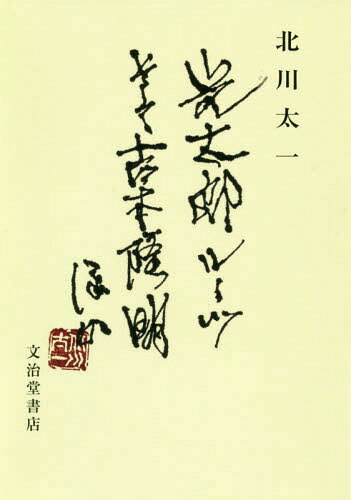 北川太一
光太郎ルーツ
そして吉本隆明
ほか
文治堂書店